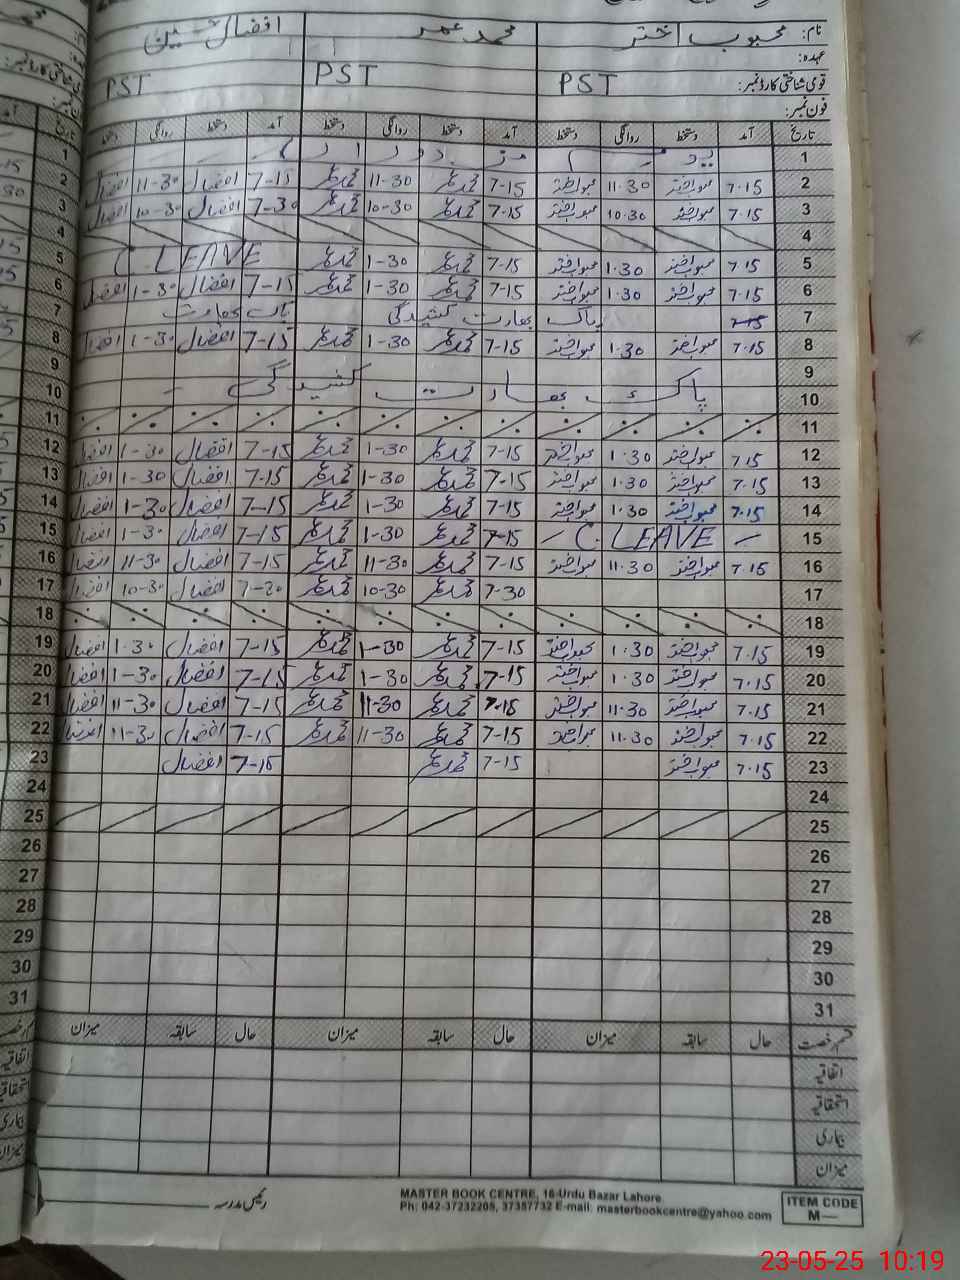 نام: محبوب اختر محمد عمر افضال حسین
عہدہ:
قومی شناختی کارڈ نمبر: PST PST PST
فون نمبر:
تاریخ آمد دستخط روانگی دستخط آمد دستخط روانگی دستخط آمد دستخط روانگی دستخط
1 یوم مزدور
2 7.15 محبوب اختر 11.30 محبوب اختر 7-15 محمد عمر 11-30 محمد عمر 7-15 افضال 11-30 افضال
3 7.15 محبوب اختر 10.30 محبوب اختر 7-15 محمد عمر 10-30 محمد عمر 7-30 افضال 10-30 افضال
4
5 7.15 محبوب اختر 1.30 محبوب اختر 7-15 محمد عمر 1-30 محمد عمر C. LEAVE
6 7.15 محبوب اختر 1.30 محبوب اختر 7-15 محمد عمر 1-30 محمد عمر 7-15 افضال 1-30 افضال
7 7-15 پاک بھارت کشیدگی پاک بھارت
8 7.15 محبوب اختر 1.30 محبوب اختر 7-15 محمد عمر 1-30 محمد عمر 7-15 افضال 1-30 افضال
9
10 پاک بھارت کشیدگی
11
12 7.15 محبوب اختر 1.30 محبوب اختر 7-15 محمد عمر 1-30 محمد عمر 7-15 افضال 1-30 افضال
13 7.15 محبوب اختر 1.30 محبوب اختر 7-15 محمد عمر 1-30 محمد عمر 7-15 افضال 1-30 افضال
14 7.15 محبوب اختر 1.30 محبوب اختر 7-15 محمد عمر 1-30 محمد عمر 7-15 افضال 1-30 افضال
15 – C. LEAVE – 7-15 محمد عمر 1-30 محمد عمر 7-15 افضال 1-30 افضال
16 7.15 محبوب اختر 11.30 محبوب اختر 7-15 محمد عمر 11-30 محمد عمر 7-15 افضال 11-30 افضال
17 7-30 محمد عمر 10-30 محمد عمر 7-30 افضال 10-30 افضال
18
19 7.15 محبوب اختر 1.30 محبوب اختر 7-15 محمد عمر 1-30 محمد عمر 7-15 افضال 1-30 افضال
20 7.15 محبوب اختر 1.30 محبوب اختر 7-15 محمد عمر 1-30 محمد عمر 7-15 افضال 1-30 افضال
21 7.15 محبوب اختر 11.30 محبوب اختر 7-15 محمد عمر 11-30 محمد عمر 7-15 افضال 11-30 افضال
22 7.15 محبوب اختر 11.30 محبوب اختر 7-15 محمد عمر 11-30 محمد عمر 7-15 افضال 11-30 افضال
23 7.15 محبوب اختر 7-15 محمد عمر 7-15 افضال
24
25
26
27
28
29
30
31
قسم رخصت حال سابقہ میزان حال سابقہ میزان حال سابقہ میزان
اتفاقیہ
استحقاقیہ
بیماری
میزان
رئیس مدرسہ
MASTER BOOK CENTRE, 16-Urdu Bazar Lahore
Ph: 042-37232205, 37357732 E-mail: masterbookcentre@yahoo.com
ITEM CODE
M—
23-05-25 10:19